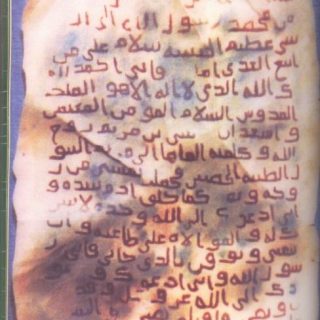 من محمد رسول الله الى ال
شي عظيم الحبشة سلام على من
اتبع الهدى اما فاني احمد الي
ك الله الذي لا اله الا هو الملك
القدوس السلام المومن المهيمن
و اشهد ان عيسى بن مريم روح
الله و كلمته القاها الى مريم البتو
ل الطيبة الحصينة فحملت بعيسى من ر
وحه و كما خلق ادم بيده و
اني ادعوك الى الله وحده لا شر
يك له و الموالاة على طاعته و ا
تتبعني و توقن بالذي جاني فاني ر
سول الله و اني ادعوك و جنو
دك الى الله عز و جل و قد